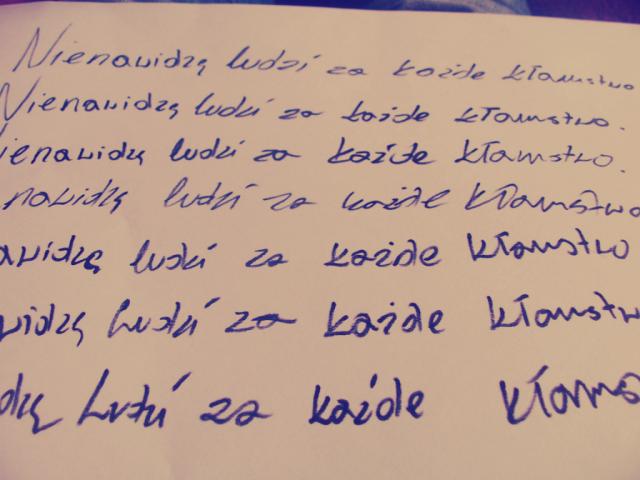 Nienawidzą ludzi za każde kłamstwo
Nienawidzą ludzi za każde kłamstwo.
ienawidzą ludzi za każde kłamstwo.
nawidzą ludzi za każde kłamstwo
awidzą ludzi za każde kłamstwo
widzą ludzi za każde kłamstw
dzą ludzi za każde kłams